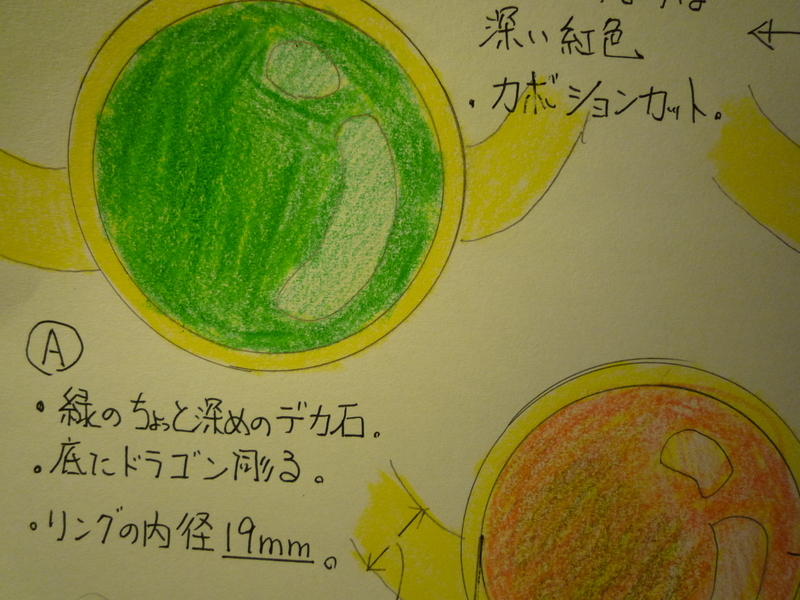 深い紅色
・カボションカット。
A
・緑のちょっと深めのデカ石。
・底にドラゴン彫る。
・リングの内径19mm。